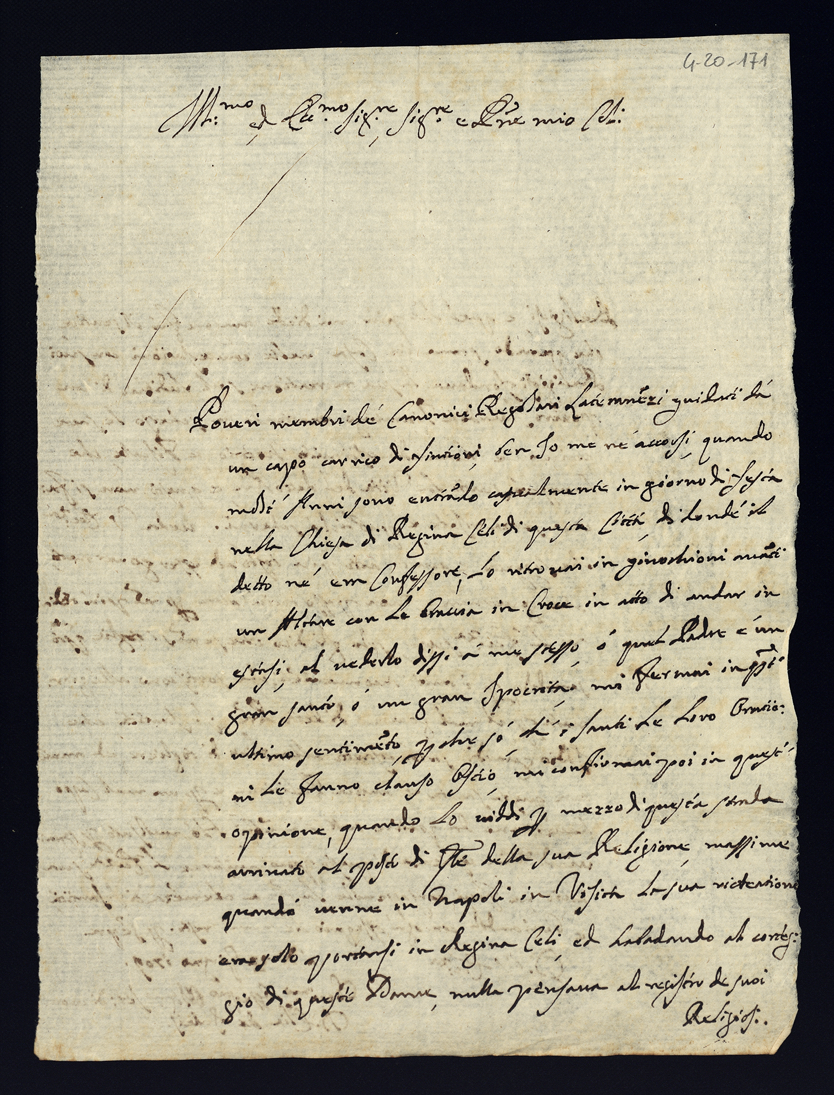 4-20-171
Ill:mo ed Ecc:mo Sig:re Sig:re e Pne mio Col:
Poveri membri dé Canonici Regolari Lateranẽzi guidati dá
un capo carrico di fintioni, ben Io me ne accorsi, quando
molti Anni sono entrãdo casualmente in giorno di festa
nella Chiesa di Regina Celi di questa Cittá, di donde il
detto né era Confessore, Lo ritrovai in ginochioni avãti
un Altare con Le braccia in Croce in atto di andar in
estasi, al vederlo dissi á me stesso, ó quel Padre é un
gran santo, ó un gran Ipocrita, mi fermai in qst'
ultimo sentimẽto, perche só, ché i santi Le Loro Oratio:
ni Le fanno clauso Ostio, mi confirmai poi in quest'
opinione, quando Lo viddi per mezzo di questa strada
arrivato al posto di della sua Religione, massime
quando venne in Napoli in Visita La sua ricreatione
era solo portarsi in Regina Celi, ed badando al corteg:
gio di queste Dame, nulla pensava al registro de suoi
Religiosi.